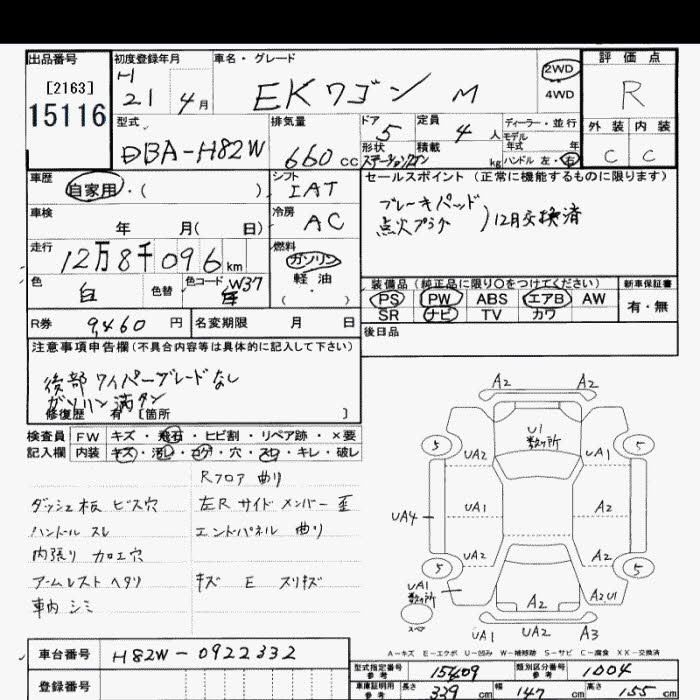 出品番号
[2163]
15116
初度登録年月
H
21 4月
車名・グレード
EKワゴン M
2WD
4WD
評価点
R
外装 内装
C C
型式
DBA-H82W
排気量
660 cc
ドア 5
定員 4 人
形状 ステーションワゴン
積載 kg
ディーラー・並行
モデル
年式 年
ハンドル 左・右
車歴
自家用・( )
シフト
IAT
車検
年 月( 日)
冷房
AC
走行
12万8千096 km
燃料
ガソリン
軽油
( )
色
白
色替
色コード W37
セールスポイント (正常に機能するものに限ります)
ブレーキパッド
点火プラグ )12月交換済
装備品 (純正品に限り○をつけてください)
PS PW ABS エアB AW
SR ナビ TV カワ
新車保証書
有・無
R券 9,460 円
名変期限 月 日
後日品
注意事項申告欄 (不具合内容等は具体的に記入して下さい)
後部 ワイパーブレードなし
ガソリン満タン
修復歴 有 [箇所 ]
検査員 FW キズ・飛石・ヒビ割・リペア跡・×要
記入欄 内装 キズ・汚レ・コゲ・穴・スレ・キレ・破レ
Rフロア 曲り
ダッシュ板 ビス穴 左R サイドメンバー 歪
ハンドル スレ エンドパネル 曲り
内張り カロエ穴
アームレスト ヘタリ キズ E スリキズ
車内 シミ
A2 A2
U1
数ヶ所
5 5
UA2 UA1
UA4 UA1 A2
UA2 A2
5 5
UA1
数ヶ所
スペア
A2
A2U1
A2
UA1 UA2 A3
A－キズ E－エクボ U－凹み W－補修跡 S－サビ C－腐食 XX－交換済
車台番号 H82W-0922332
登録番号
型式指定番号
参考
15409
類別区分番号
参考
1004
車庫証明用
参考
長さ 339 cm 幅 147 cm 高さ 155 cm